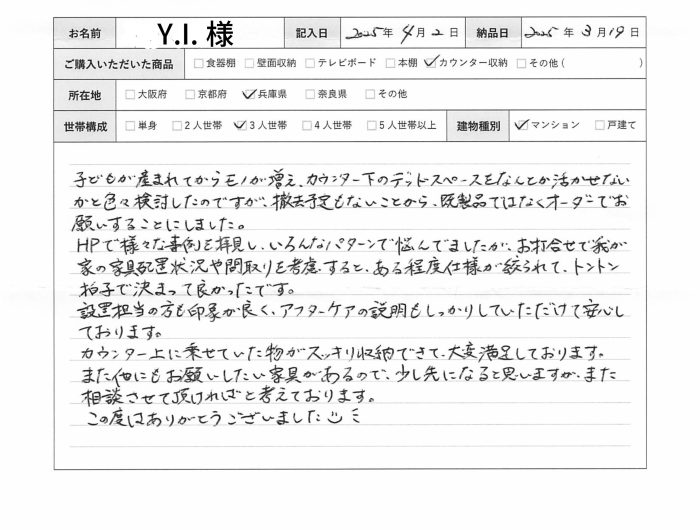 お名前 Y.I. 様 記入日 2025年 4月 2日 納品日 2025年 3月 19日
ご購入いただいた商品 □食器棚 □壁面収納 □テレビボード □本棚 ☑カウンター収納 □その他( )
所在地 □大阪府 □京都府 ☑兵庫県 □奈良県 □その他
世帯構成 □単身 □2人世帯 ☑3人世帯 □4人世帯 □5人世帯以上 建物種別 ☑マンション □戸建て
子どもが産まれてからモノが増え、カウンター下のデッドスペースをなんとか活かせない
かと色々検討したのですが、撤去予定もないことから、既製品ではなくオーダーでお
願いすることにしました。
HPで様々な事例を拝見し、いろんなパターンで悩んでましたが、お打合せで我が
家の家具配置状況や間取りを考慮すると、ある程度仕様が絞られて、トントン
拍子で決まって良かったです。
設置担当の方も印象が良く、アフターケアの説明もしっかりしていただけて安心し
ております。
カウンター上に乗せていた物がスッキリ収納できて、大変満足しております。
また他にもお願いしたい家具があるので、少し先になると思いますが、また
相談させて頂ければと考えております。
この度はありがとうございました